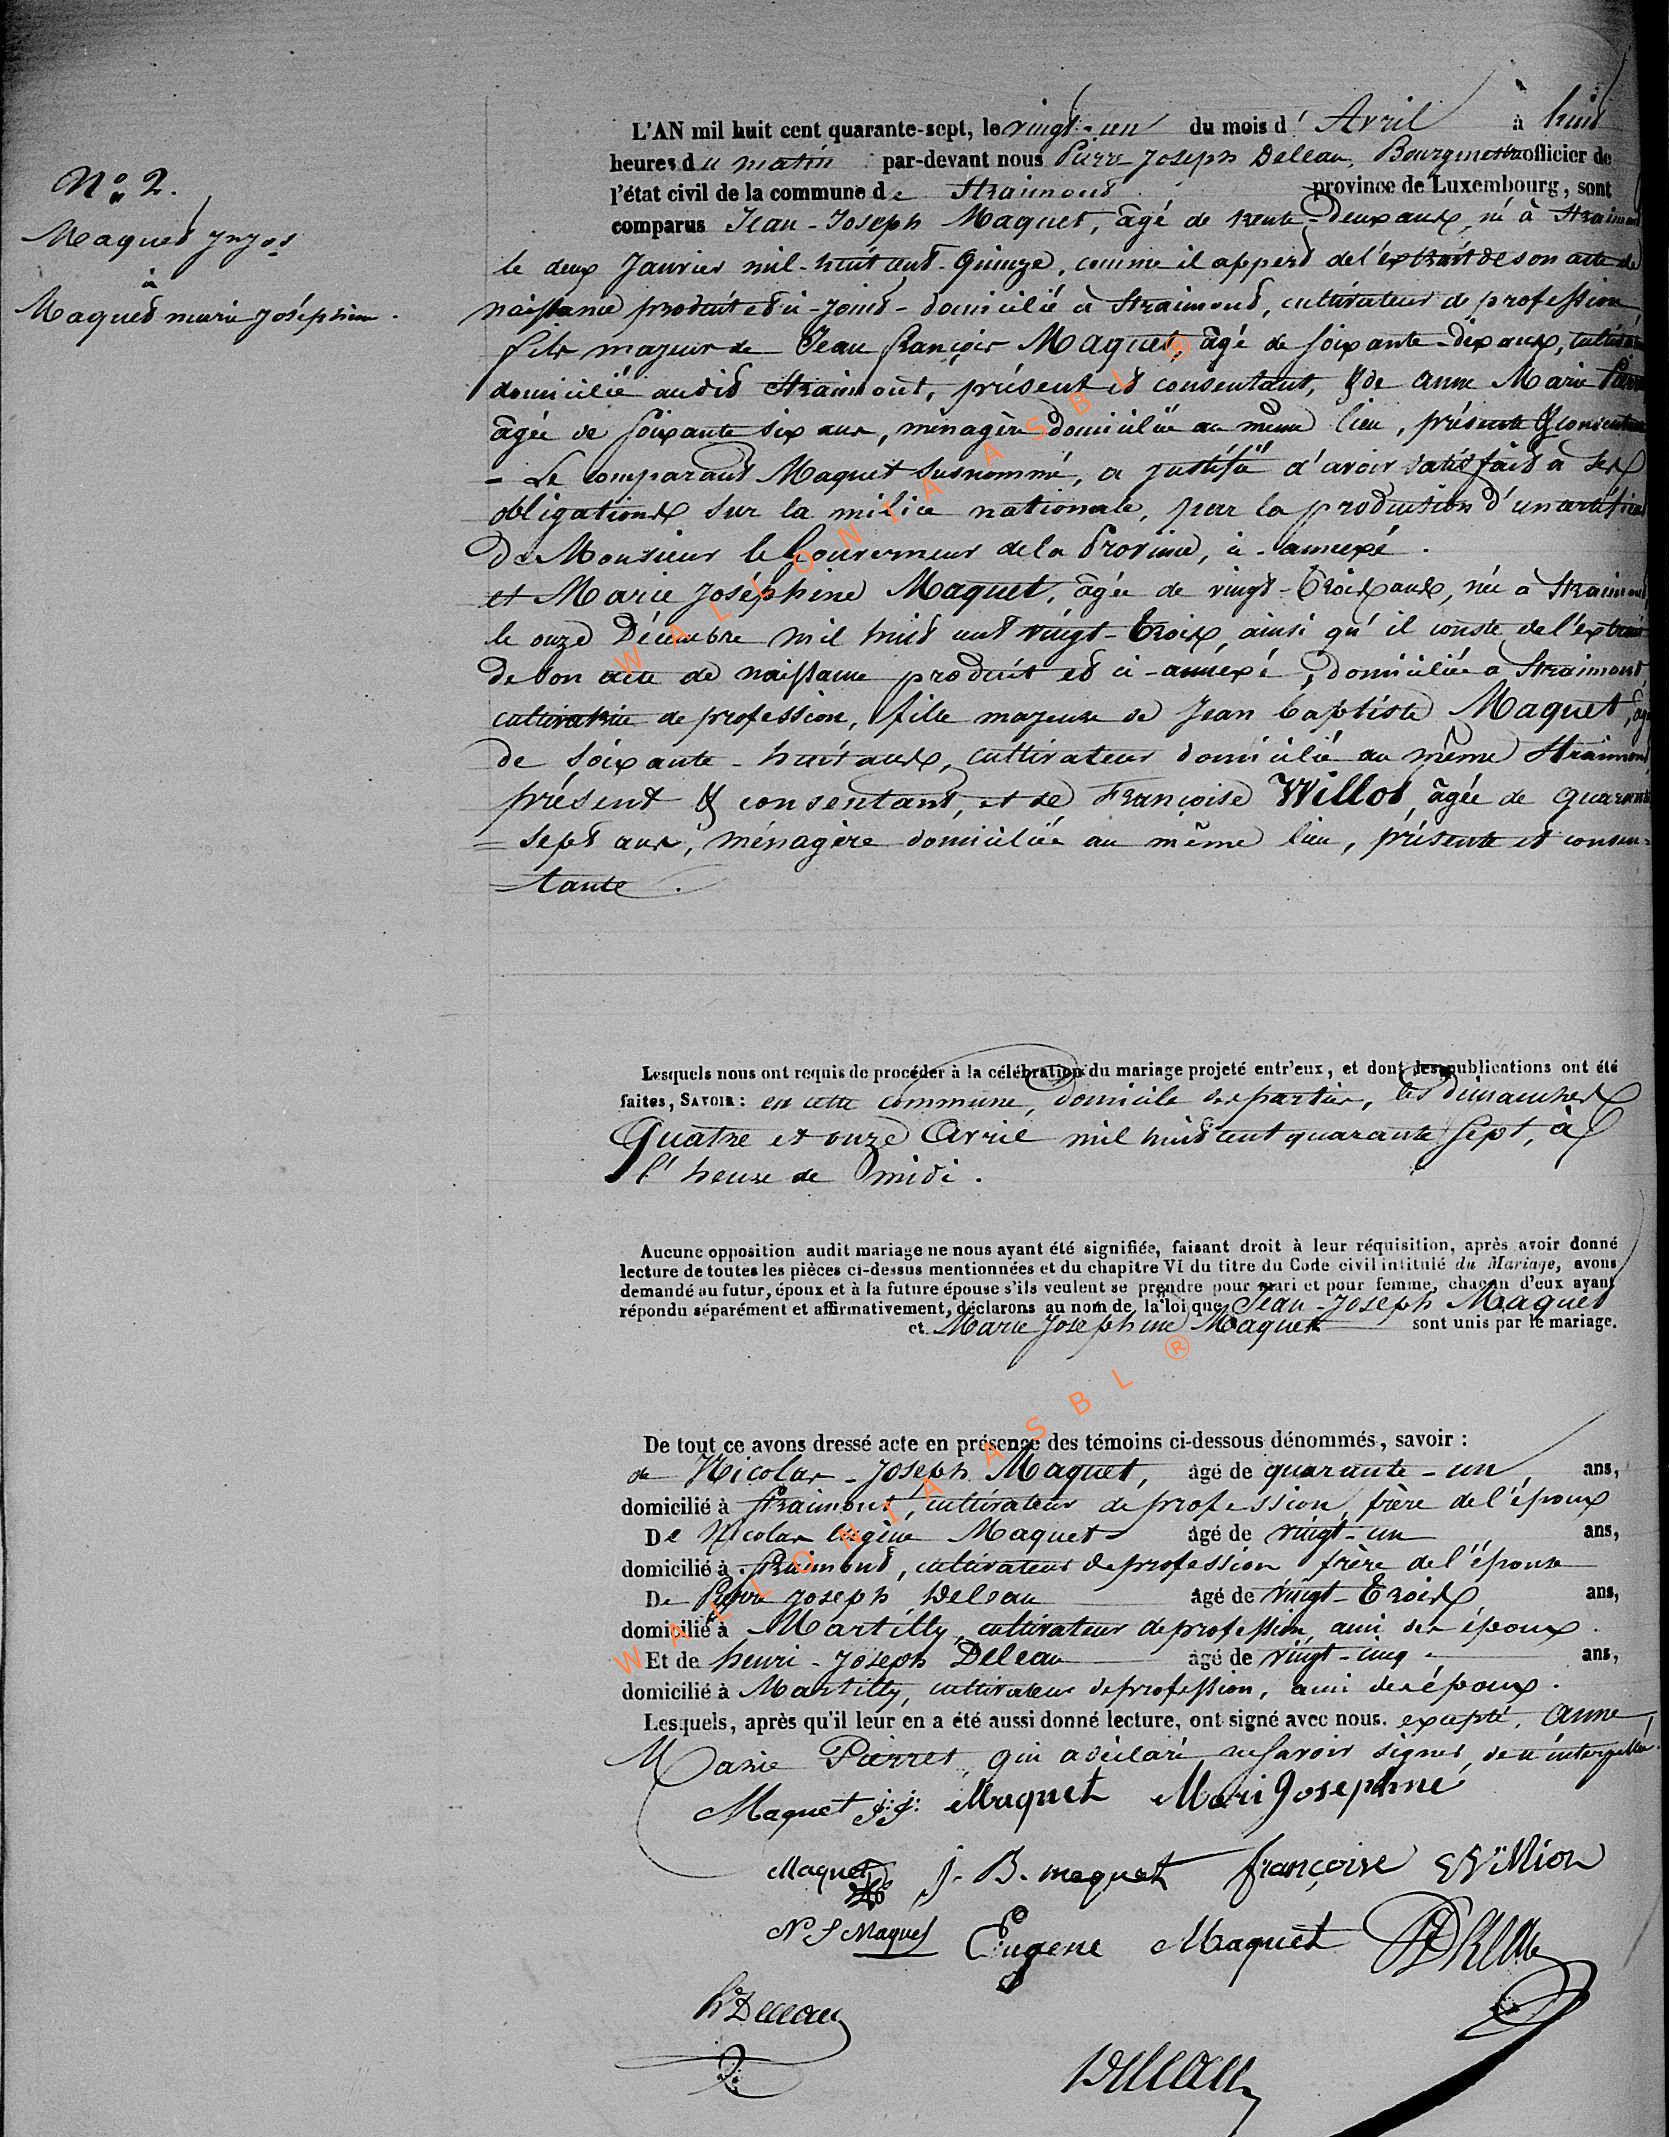 N° 2.
Maquet Jn Jos
à
Maquet marie Joséphine.
L'AN mil huit cent quarante-sept, le vingt-un du mois d'Avril à huit
heures du matin par-devant nous Pierre Joseph Deleau, Bourgmestre officier de
l'état civil de la commune de Straimont province de Luxembourg, sont
comparus Jean-Joseph Maquet, âgé de trente-deux ans, né à Straimont
le deux Janvier mil-huit cent-Quinze, comme il appert de l'extrait de son acte de
naissance produit et ci-joint-domicilié à Straimont, cultivateur de profession,
fils majeur de Jean françois Maquet, âgé de soixante-dix ans, cultivateur
domicilié audit Straimont, présent et consentant, & de Anne Marie Pierret
âgée de soixante six ans, ménagère domiciliée au même lieu, présente & consentante
- Le comparant Maquet susnommé, a justifié d'avoir satisfait à ses
obligations sur la milice nationale, par la production d'un certificat
de Monsieur le Gouverneur de la Province, ci-annexé.
et Marie Joséphine Maquet, âgée de vingt-trois ans, née à Straimont
le onze Décembre mil huit cent vingt-trois, ainsi qu'il conste de l'extrait
de son acte de naissance produit et ci-annexé, domiciliée à Straimont,
cultivatrice de profession, fille majeure de Jean baptiste Maquet, âgé
de soixante-huit ans, cultivateur domicilié au même Straimont,
présent & consentant, et de Françoise Willot, âgée de quarante
= sept ans, ménagère domiciliée au même lieu, présente et consen=
=tante.
Lesquels nous ont requis de procéder à la célébration du mariage projeté entr'eux, et dont les publications ont été
faites, SAVOIR: en cette commune, domicile des parties, les dimanches
Quatre et onze Avril mil huit cent quarante sept, à
l'heure de midi.
Aucune opposition audit mariage ne nous ayant été signifiée, faisant droit à leur réquisition, après avoir donné
lecture de toutes les pièces ci-dessus mentionnées et du chapitre VI du titre du Code civil intitulé du Mariage, avons
demandé au futur, époux et à la future épouse s'ils veulent se prendre pour mari et pour femme, chacun d'eux ayant
répondu séparément et affirmativement, déclarons au nom de la loi que Jean-Joseph Maquet
et Marie Josephine Maquet sont unis par le mariage.
De tout ce avons dressé acte en présence des témoins ci-dessous dénommés, savoir:
de Nicolas-Joseph Maquet, âgé de quarante-un, ans,
domicilié à Straimont, cultivateur de profession, frère de l'époux
De Nicolas Eugène Maquet âgé de vingt-un ans,
domicilié à Straimont, cultivateur de profession frère de l'épouse
De Pierre Joseph Deleau âgé de vingt-trois ans,
domicilié à Martilly, cultivateur de profession, ami des époux.
Et de henri-Joseph Deleau âgé de vingt-cinq ans,
domicilié à Martilly, cultivateur de profession, ami des époux.
Lesquels, après qu'il leur en a été aussi donné lecture, ont signé avec nous. excepté, Anne
Marie Pierret, qui a déclaré ne savoir signer, de ce interpellée.
Maquet j:j: Maquet Mari Josephine
Maquet J. B. maquet françoise Willion
N J Maquet Eugene Maquet
hr Deleau
Deleau
WALLONIA ASBL ®
WALLONIA ASBL ®